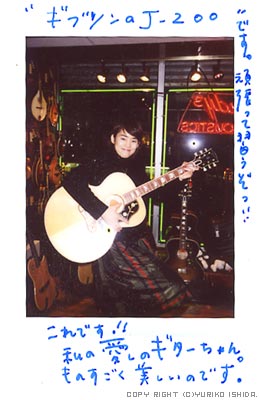 "ギブソンのJ-200
"です。頑張って
これです!!
私の愛しのギターちゃん。
ものすごく美しいのです。
COPY RIGHT (C)YURIKO ISHIDA.